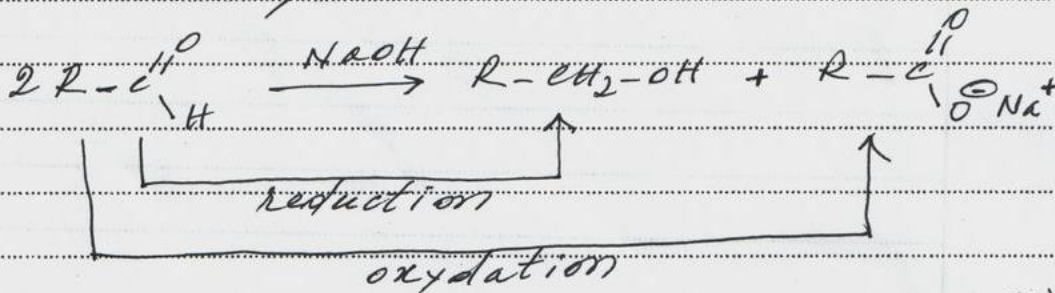 2 R-C=O H NaOH R-CH2-OH + R-C=O O⊖Na+
reduction
oxydation